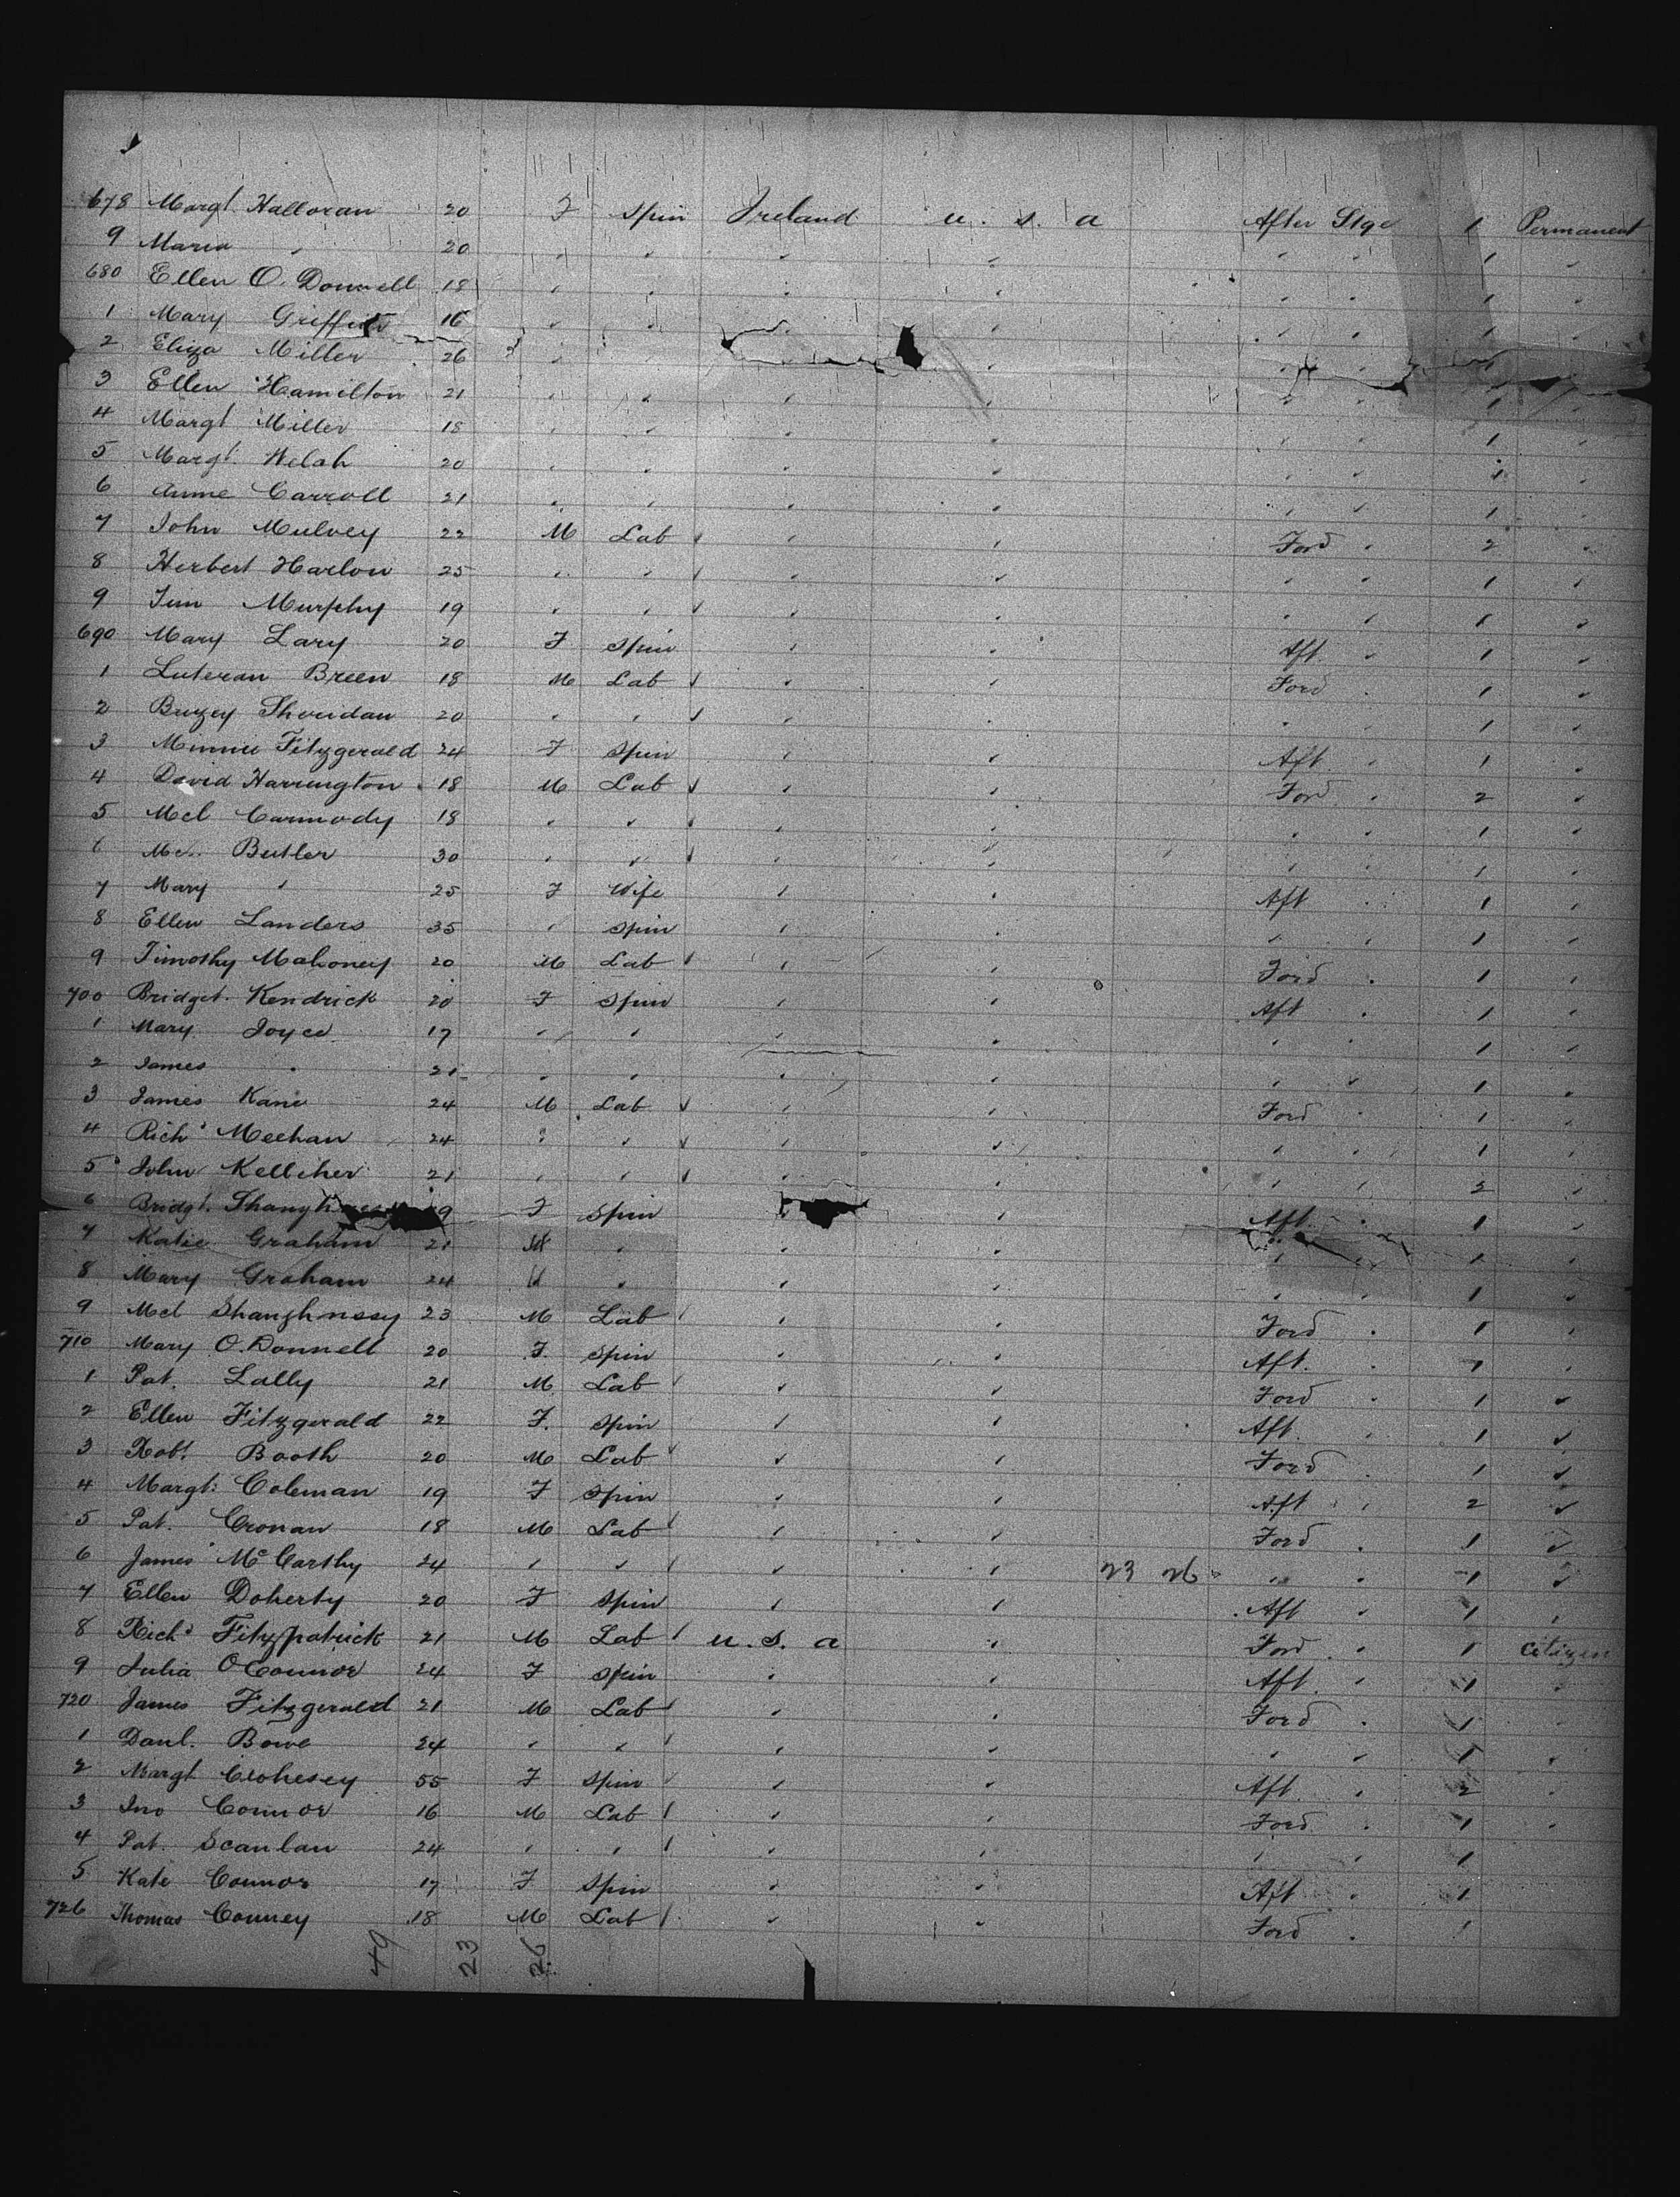 678 Margt. Halloran 20 F Spin Ireland u. s. a After Stge 1 Permanent
9 Maria " 20 " " " " " " 1 "
680 Ellen O. Donnell 18 " " " " " " 1 "
1 Mary Griffin 16 " " " " " " 1 "
2 Eliza Miller 26 " " " " "
3 Ellen Hamilton 21 " " " " " " 1 "
4 Margt Miller 18 " " " " " " 1 "
5 Margt. Welsh 20 " " " " " " 1 "
6 Anne Carroll 21 " " " " " " 1 "
7 John Mulvey 22 M Lab " " Ford " 2 "
8 Herbert Harlow 25 " " " " " " 1 "
9 Murphy 19 " " " " " " 1 "
690 Mary Lary 20 F Spin " " Aft. " 1 "
1 Breen 18 M Lab " " Ford " 1 "
2 Sheridan 20 " " " " " " 1 "
3 Minnie Fitzgerald 24 F Spin " " Aft. " 1 "
4 David Harrington 18 M Lab " " Ford " 2 "
5 Mcl Carmody 18 " " " " " " 1 "
6 Butler 30 " " " " " " 1 "
7 Mary " 25 F Wife " " Aft " 1 "
8 Ellen Landers 35 " Spin " " " " 1 "
9 Timothy Mahoney 20 M Lab " " Ford " 1 "
700 Bridget. Kendrick 20 F Spin " " Aft " 1 "
1 Mary Joyce 17 " " " " " " 1 "
2 James " 21 " " " " " " 1 "
3 James Kane 24 M Lab " " Ford " 1 "
4 Richd Meehan 24 " " " " " " 1 "
5 John Kelliher 21 " " " " " " 2 "
6 Bridgt. F Spin " " Aft. " 1 "
7 Katie Graham 21 " " " " " 1 "
8 Mary Graham 24 " " " " " 1 "
9 Mcl Shaughnssy 23 M Lab " " Ford " 1 "
710 Mary O. Donnell 20 F. Spin " " Aft. " 1 "
1 Pat. Lally 21 M Lab " " Ford " 1 "
2 Ellen Fitzgerald 22 F. Spin " " Aft. " 1 "
3 Robt. Booth 20 M Lab " " Ford " 1 "
4 Margt. Coleman 19 F Spin " " Aft " 2 "
5 Pat. Cronan 18 M Lab " " Ford " 1 "
6 James McCarthy 24 " " " " 23 26 " " 1 "
7 Ellen Doherty 20 F Spin " " Aft " 1 "
8 Richd Fitzpatrick 21 M Lab u. S. a " Ford " 1 Citizen
9 Julia OConnor 24 F Spin " " Aft. " 1 "
720 James Fitzgerald 21 M Lab " " Ford " 1 "
1 Danl. Bowe 24 " " " " " " 1 "
2 Margt Clohesey 55 F Spin " " Aft " 2 "
3 Jno Connor 16 M Lab " " Ford " 1 "
4 Pat. Scanlan 24 " " " " " " 1
5 Kate Connor 17 F Spin " " Aft " 1
726 Thomas Conney 18 M Lab " " Ford " 1
49 23 26